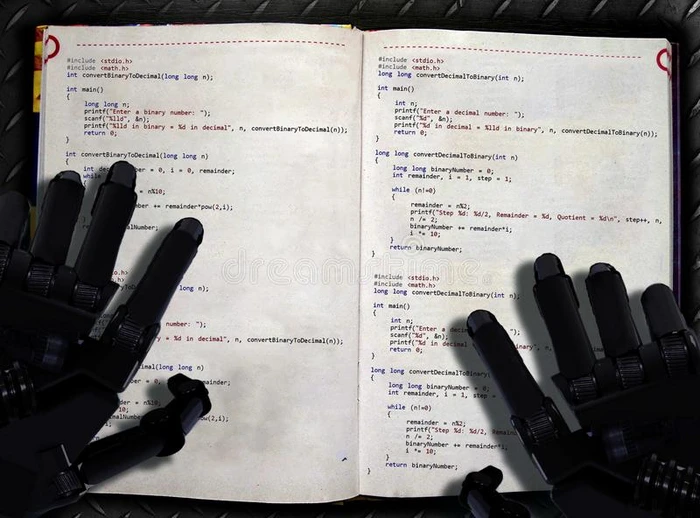 #include <stdio.h>
#include <math.h>
int convertBinaryToDecimal(long long n);
int main()
{
long long n;
printf("Enter a binary number: ");
scanf("%lld", &n);
printf("%lld in binary = %d in decimal", n, convertBinaryToDecimal(n));
return 0;
}
int convertBinaryToDecimal(long long n)
{
int = 0, i = 0, remainder;
while
= n%10;
+= remainder*pow(2,i);
dio.h>
th.h>
n);
number: ");
= %d in decimal", n, convertBinaryToDecimal(n));
(long long n)
= 0, remainder;
= n%10;
10;
#include <stdio.h>
#include <math.h>
long long convertDecimalToBinary(int n);
int main()
{
int n;
printf("Enter a decimal number: ");
scanf("%d", &n);
printf("%d in decimal = %lld in binary", n, convertDecimalToBinary(n));
return 0;
}
long long convertDecimalToBinary(int n)
{
long long binaryNumber = 0;
int remainder, i = 1, step = 1;
while (n!=0)
{
remainder = n%2;
printf("Step %d: %d/2, Remainder = %d, Quotient = %d\n", step++, n,
n /= 2;
binaryNumber += remainder*i;
i *= 10;
}
return binaryNumber;
}
#include <stdio.h>
#include <math.h>
long long convertDecimalToBinary(int n);
int main()
{
int n;
printf("Enter a
scanf("%d", &n);
printf("%d in decimal
return 0;
}
long long convertDecimalToBinary(
{
long long binaryNumber = 0;
int remainder, i = 1, step =
while (n!=0)
{
remainder = n%2;
printf("Step %d: %d/2,
n /= 2;
binaryNumber += remainder*i;
i *= 10;
}
return binaryNumber;
}
dreamstime